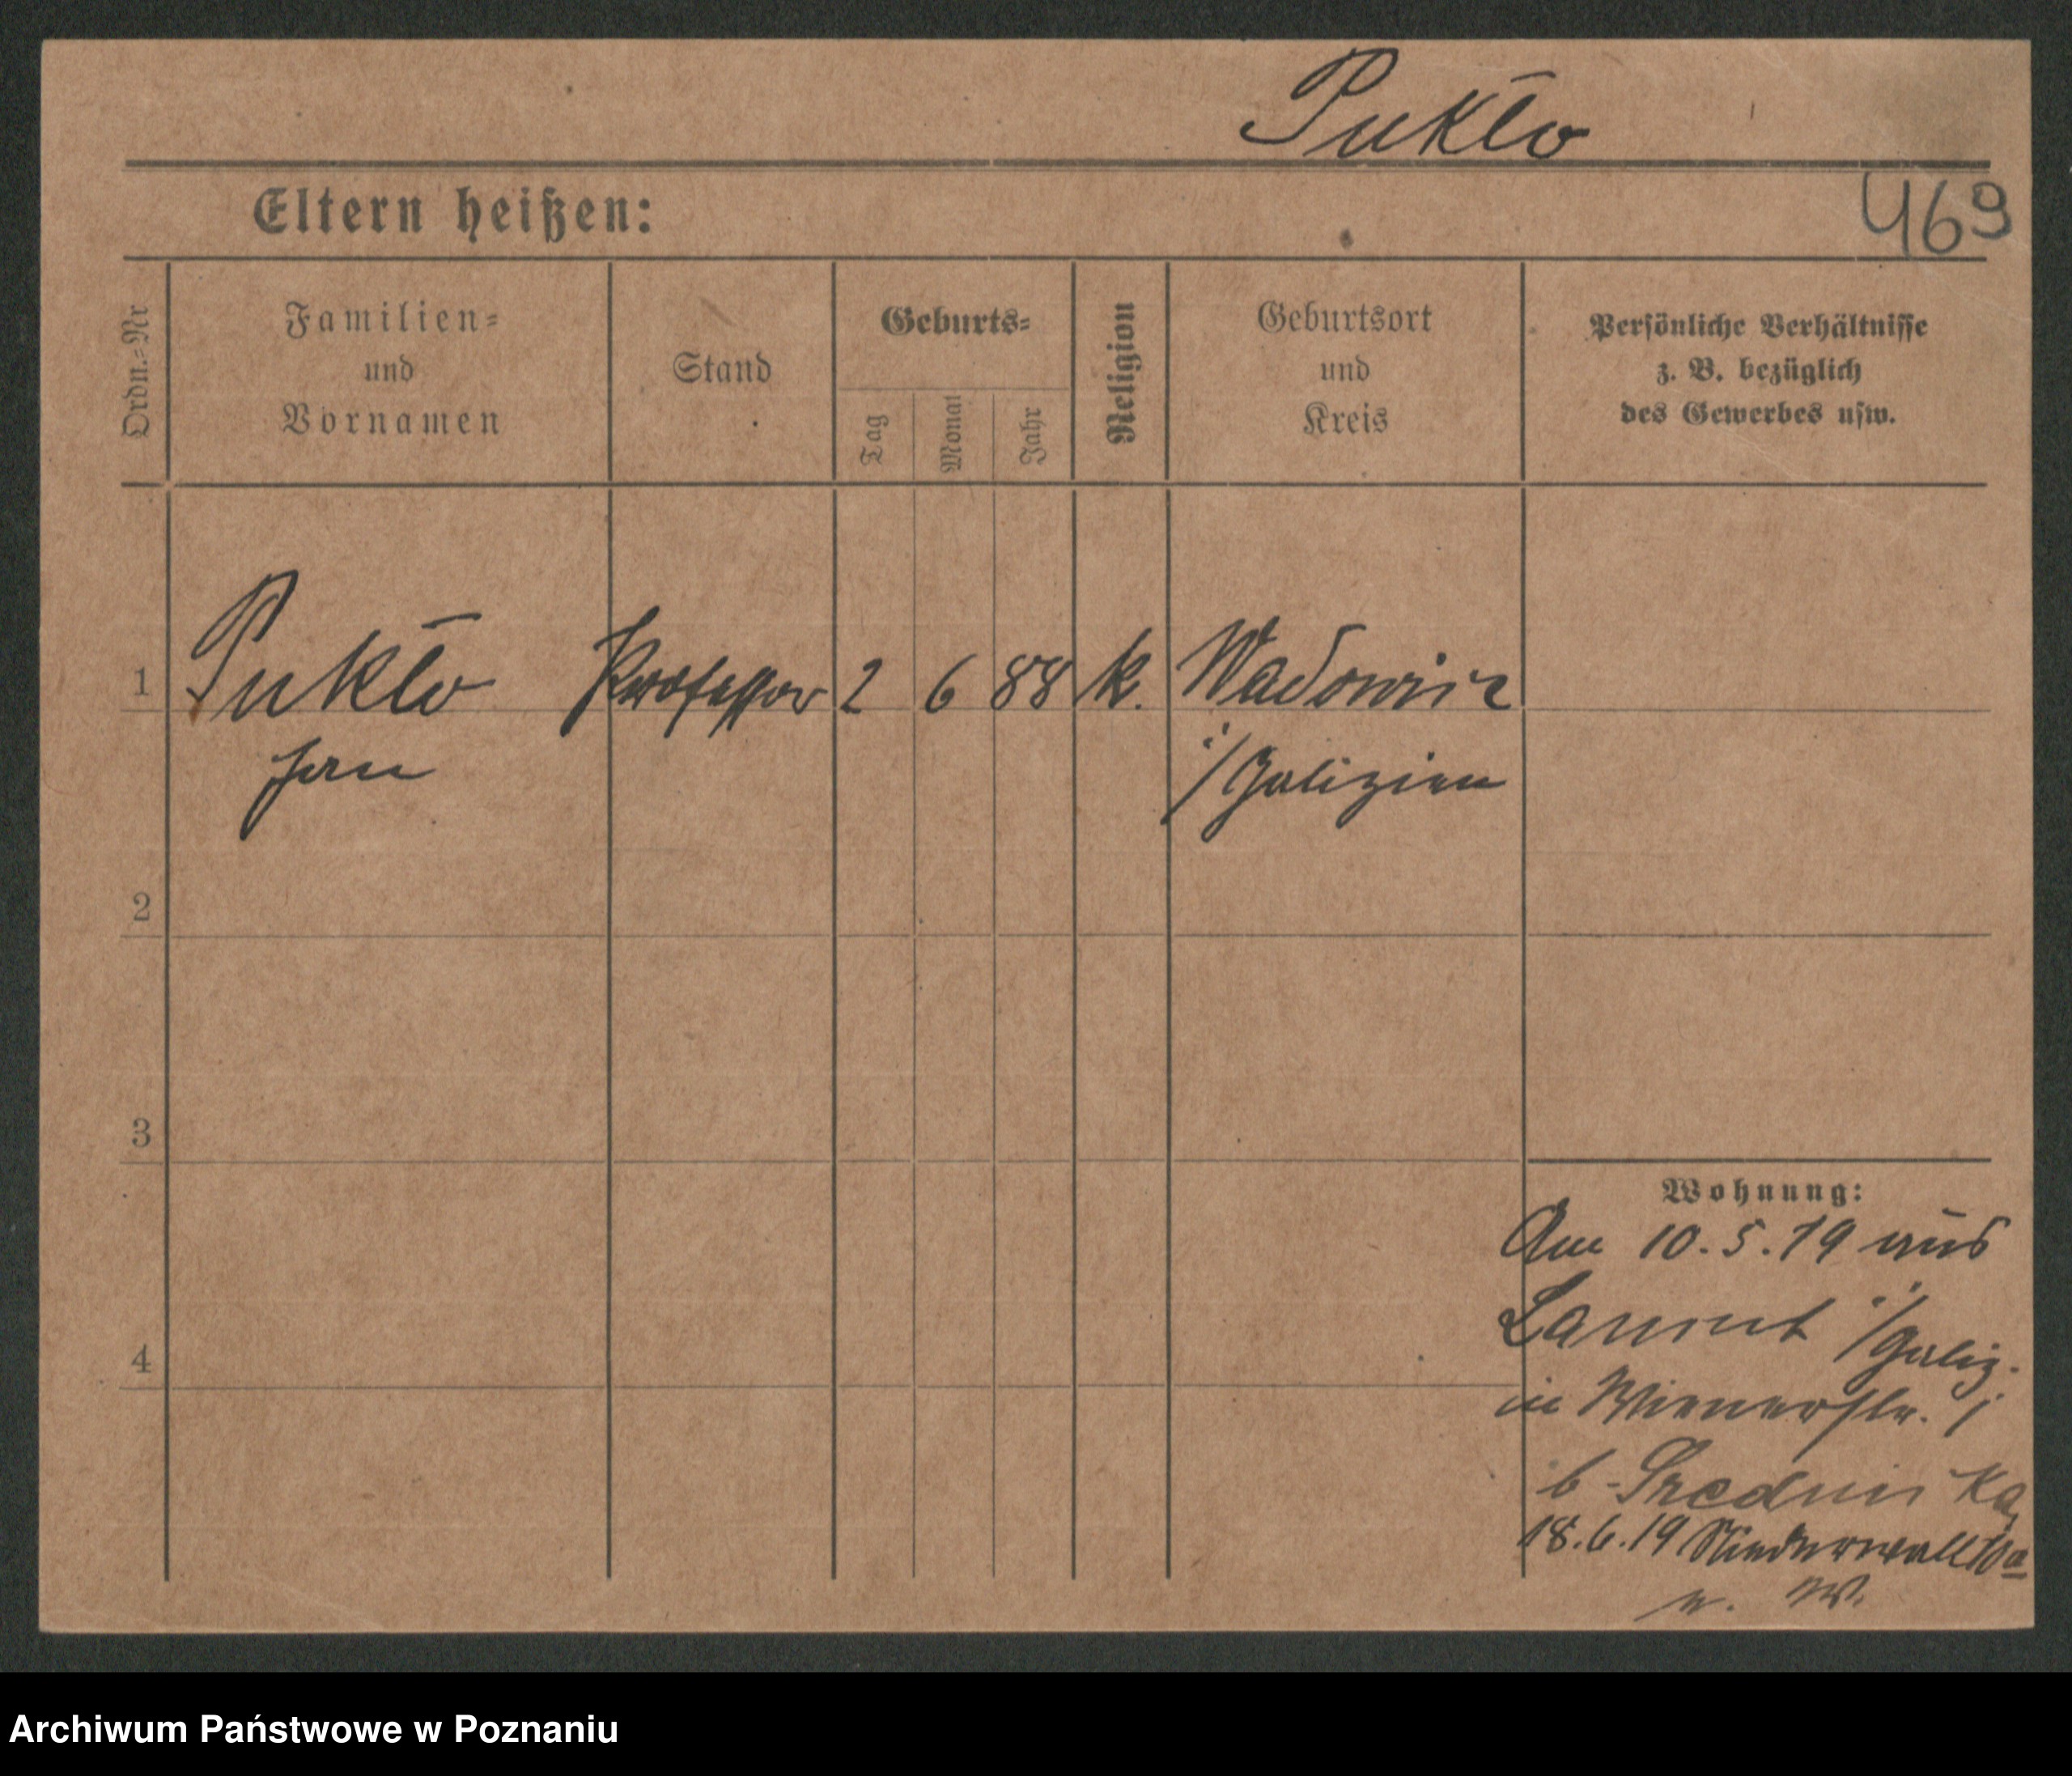 Pukło
Eltern heißen:
469
Ordn.=Nr
Familien=
und
Vornamen
Stand
Geburts=
Tag
Monat
Jahr
Religion
Geburtsort
und
Kreis
Persönliche Verhältnisse
z. B. bezüglich
des Gewerbes usw.
1
Pukło
Jan
Professor
2
6
88
k.
Wadowic
i/Galizien
2
3
4
Wohnung:
Am 10.5.19 aus
i/Galiz.
in Wienerstr.
b. Średnicka
18.6.19 Niederwall 10a
Archiwum Państwowe w Poznaniu